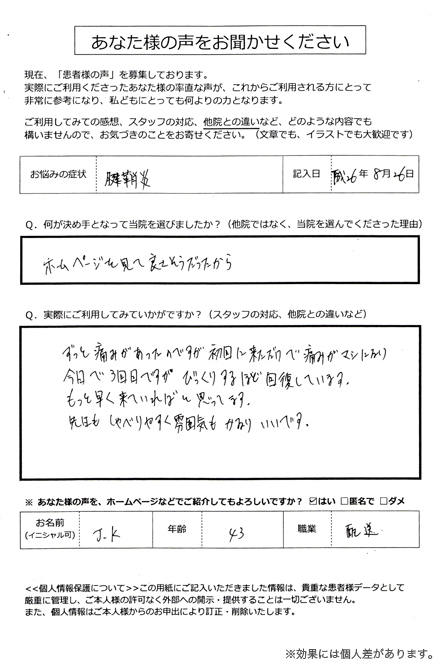 あなた様の声をお聞かせください
現在、「患者様の声」を募集しております。
実際にご利用くださったあなた様の率直な声が、これからご利用される方にとって
非常に参考になり、私どもにとっても何よりの力となります。
ご利用してみての感想、スタッフの対応、他院との違いなど、どのような内容でも
構いませんので、お気づきのことをお寄せください。（文章でも、イラストでも大歓迎です）
お悩みの症状 腱鞘炎 記入日 平成26年 8月26日
Q．何が決め手となって当院を選びましたか？（他院ではなく、当院を選んでくださった理由）
ホームページを見て良さそうだったから
Q．実際にご利用してみていかがですか？（スタッフの対応、他院との違いなど）
ずっと痛みがあったのですが初回に来ただけで痛みがマシになり
今日で3回目ですがびっくりするほど回復しています。
もっと早く来ていればと思ってます。
先生もしゃべりやすく雰囲気もかなりいいです。
※ あなた様の声を、ホームページなどでご紹介してもよろしいですか？ ☑はい □匿名で □ダメ
お名前 J.K 年齢 43 職業 配送
(イニシャル可)
<<個人情報保護について>>この用紙にご記入いただきました情報は、貴重な患者様データとして
厳重に管理し、ご本人様の許可なく外部への開示・提供することは一切ございません。
また、個人情報はご本人様からのお申出により訂正・削除いたします。
※効果には個人差があります。